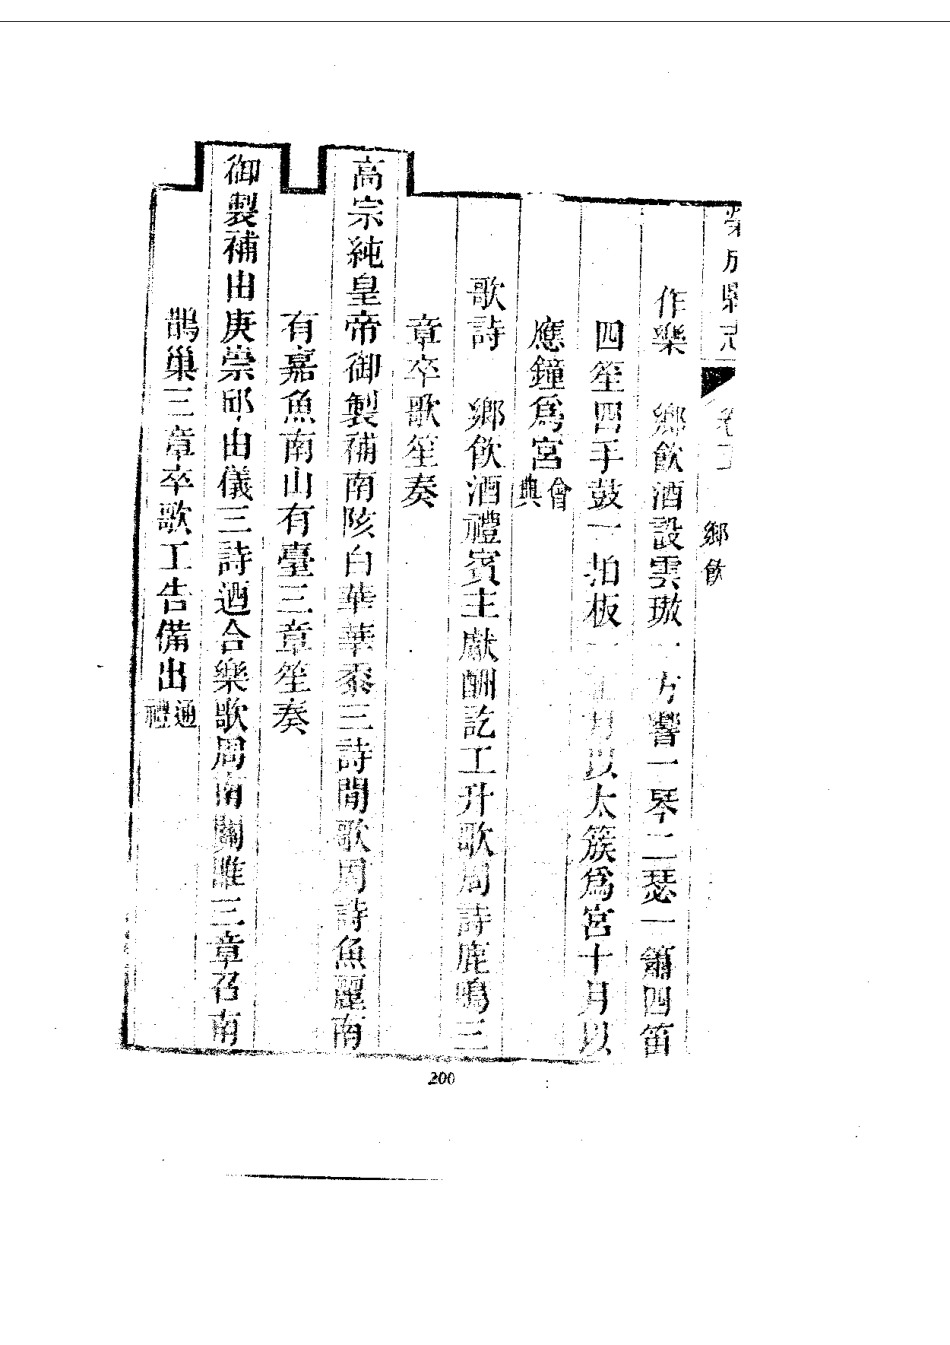 榮成縣志 卷二 鄉飲
作樂 鄉飲酒設雲璈一方響一琴二瑟一簫四笛
四笙四手鼓一拍板一正月以太簇爲宮十月以
應鐘爲宮會典
歌詩 鄉飲酒禮賓主獻酬訖工升歌周詩鹿鳴三
章卒歌笙奏
高宗純皇帝御製補南陔白華華黍三詩間歌周詩魚麗南
有嘉魚南山有臺三章笙奏
御製補由庚崇邱由儀三詩迺合樂歌周南關雎三章召南
鵲巢三章卒歌工告備出通禮
200